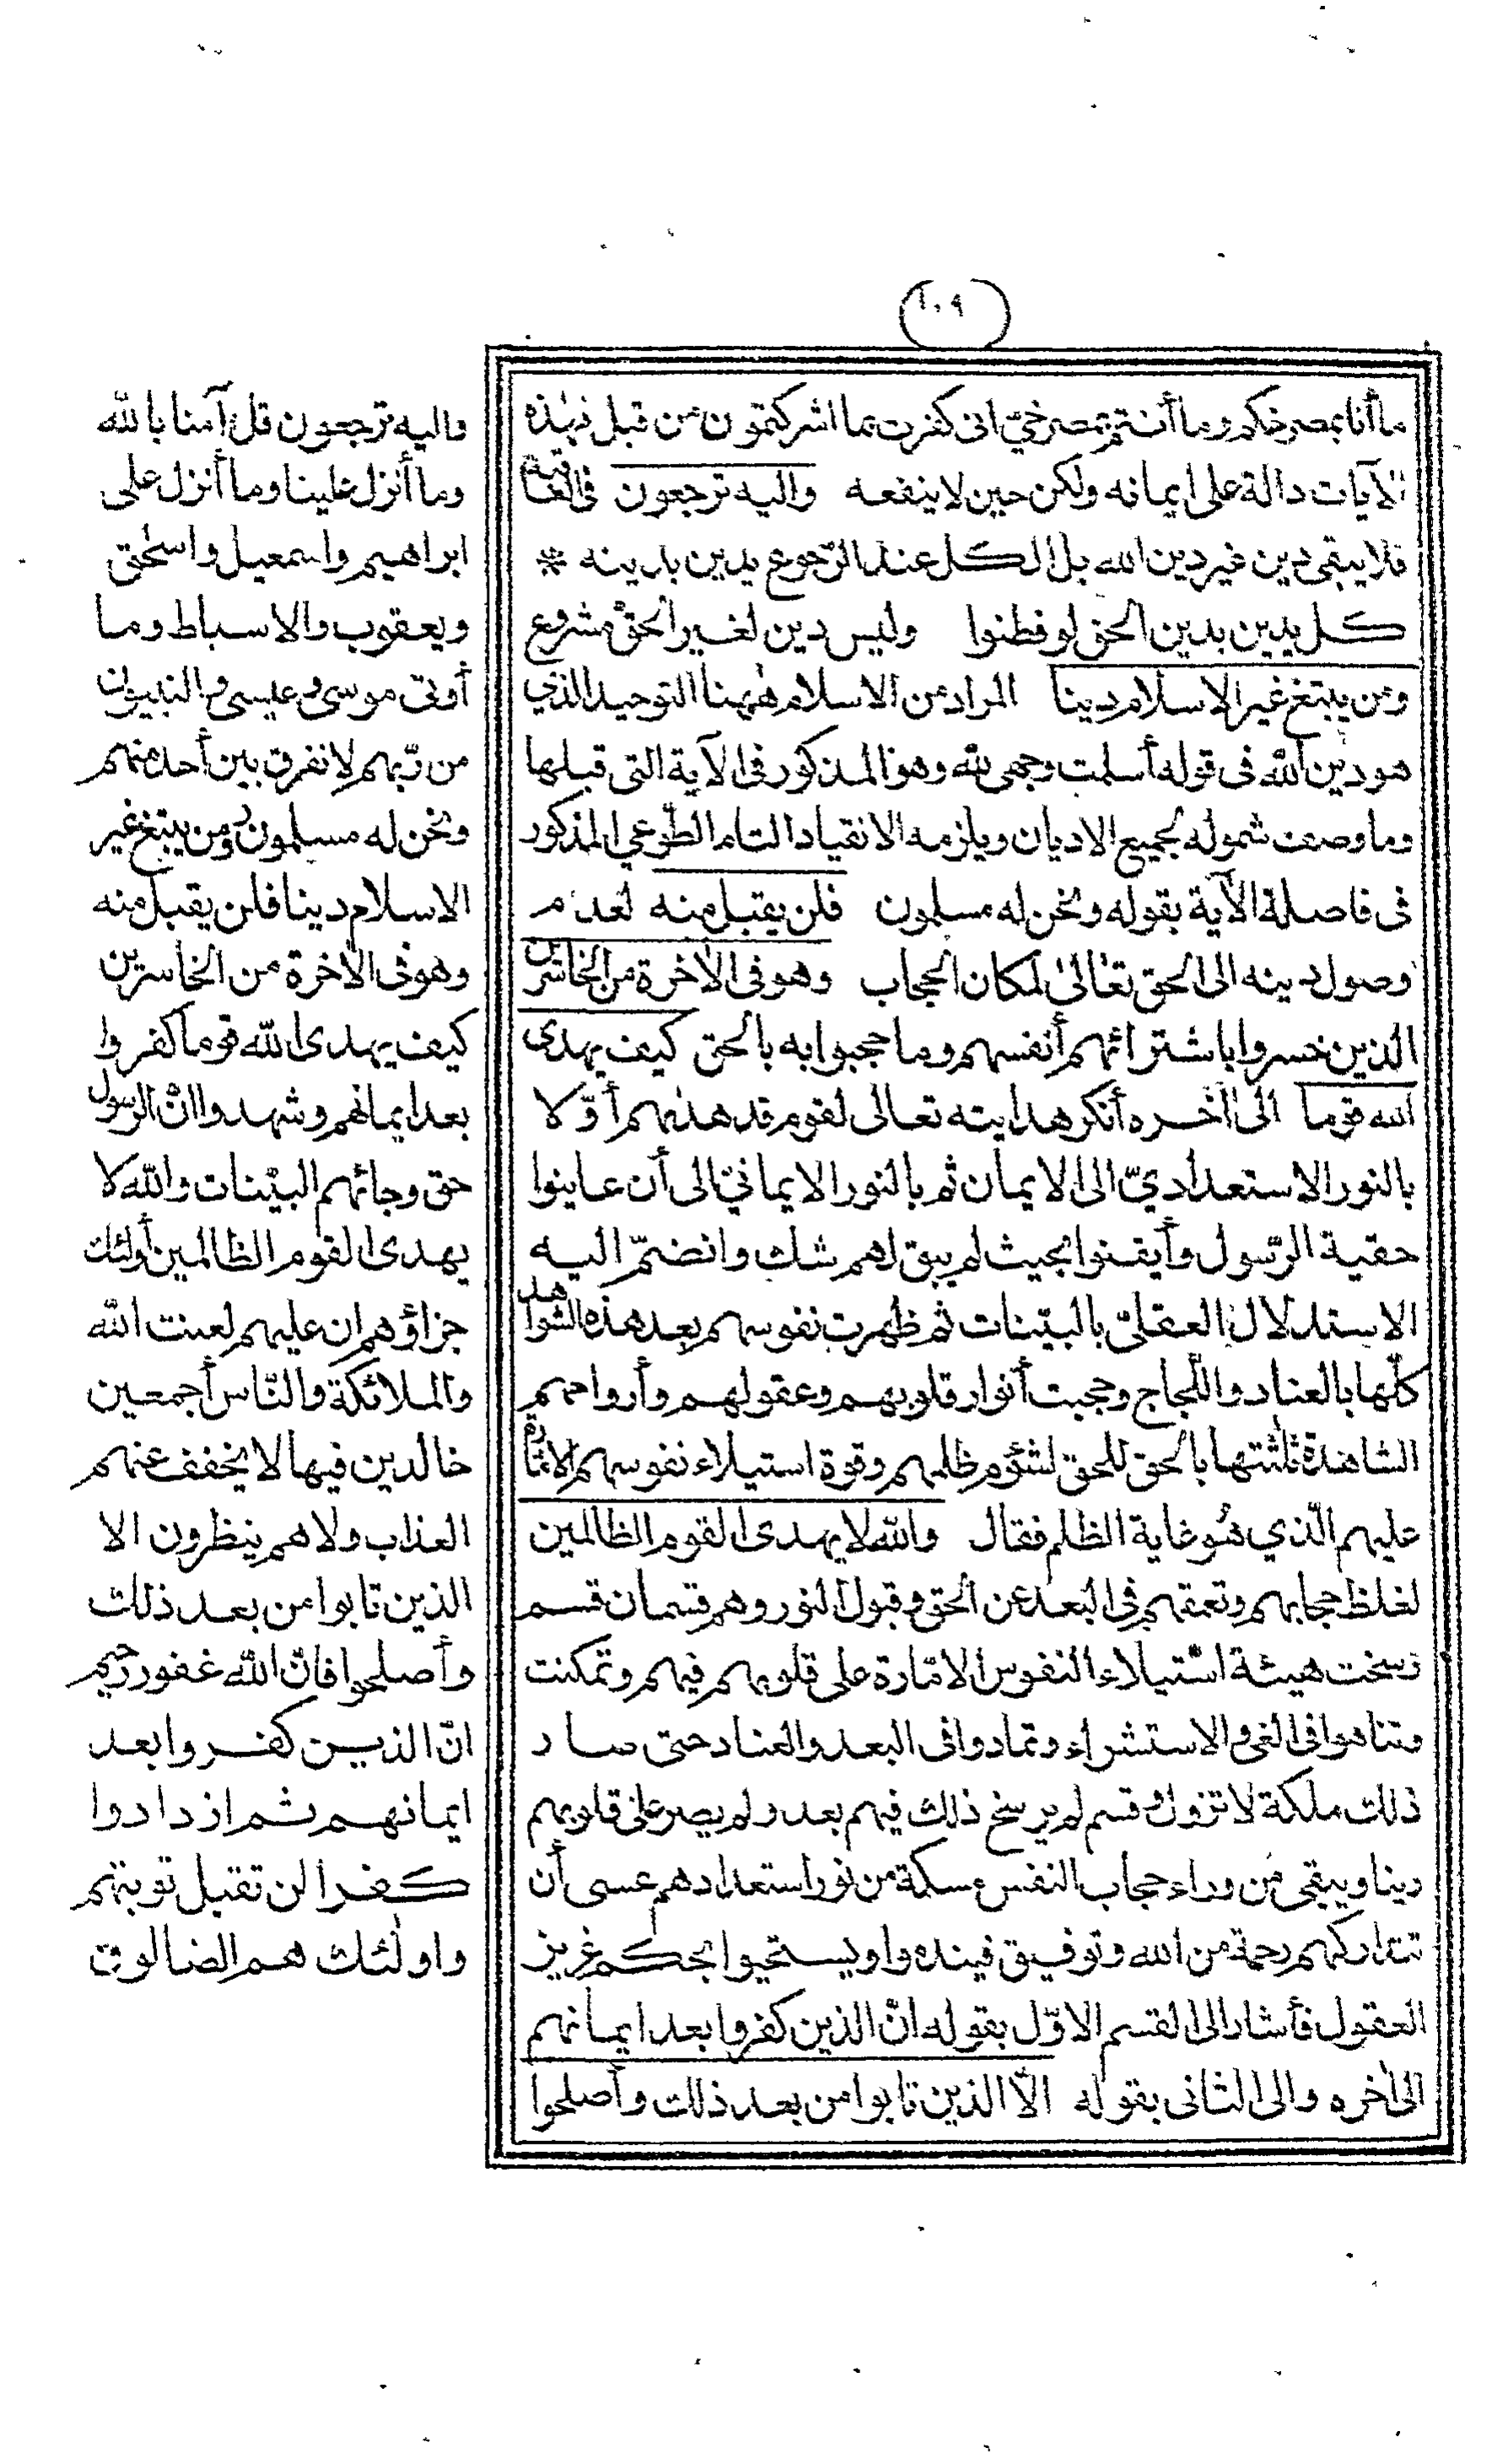 ١٠٩
ما أنا بمصرخكم وما أنتم بمصرخيّ انى كفرت بما اشركتمون من قبل فهذه
الآيات دالة على ايمانه ولكن حين لا ينفعه واليه ترجعون فى العاقبة
فلا يبقى دين غير دين الله بل الكل عند الرّجوع يدين بدينه *
كل يدين بدين الحق لو فطنوا وليس دين لغير الحق مشروع
ومن يبتغ غير الاسلام دينا المراد من الاسلام ههنا التوحيد الذي
هو دين الله فى قوله أسلمت وجهى لله وهو المذكور فى الآية التى قبلها
وما وصف شموله لجميع الاديان ويلزمه الانقياد التام الطّوعي المذكور
فى فاصلة الآية بقوله ونحن له مسلمون فلن يقبل منه لعدم
وصول دينه الى الحق تعالى لمكان الحجاب وهو فى الاخرة من الخاسرين
الذين خسروا باشترائهم أنفسهم وما حجبوا به بالحق كيف يهدى
الله قوما الى آخره أنكر هدايته تعالى لقوم قد هديهم أوّلا
بالنور الاستعداديّ الى الايمان ثم بالنور الايمانيّ الى أن عاينوا
حقية الرّسول وأيقنوا بحيث لم يبق لهم شك وانضمّ اليه
الاستدلال العقليّ بالبيّنات ثم ظهرت نفوسهم بعد هذه الشواهد
كلّها بالعناد واللّجاج وحجبت أنوار قلوبهم وعقولهم وأرواحهم
الشاهدة ثلثتها بالحق للحق لشؤم ظلمهم وقوة استيلاء نفوسهم الامّارة
عليهم الّذي هو غاية الظلم فقال والله لا يهدى القوم الظالمين
لغلظ حجابهم وتعمقهم فى البعد عن الحق وقبول النور وهم قسمان قسم
رسخت هيئة استيلاء النفوس الامّارة على قلوبهم فيهم وتمكنت
وتناهوا فى الغى والاستشراء وتمادوا فى البعد والعناد حتى صار
ذلك ملكة لا تزول وقسم لم يرسخ ذلك فيهم بعد ولم يصر على قلوبهم
رينا ويبقى من وراء حجاب النفس مسكة من نور استعدادهم عسى أن
تتداركهم رحمة من الله وتوفيق فيندموا ويستحيوا بحكم غريز
العقول فأشار الى القسم الاوّل بقوله انّ الذين كفروا بعد ايمانهم
الى آخره والى الثانى بقوله الاّ الذين تابوا من بعد ذلك وأصلحوا
واليه ترجعون قل آمنا بالله
وما أنزل علينا وما أنزل على
ابراهيم واسمعيل واسحٰق
ويعقوب والاسباط وما
أوتى موسى وعيسى والنبيون
من ربّهم لا نفرق بين أحد منهم
ونحن له مسلمون ومن يبتغ غير
الاسلام دينا فلن يقبل منه
وهو فى الاٰخرة من الخاسرين
كيف يهدى الله قوما كفروا
بعد ايمانهم وشهدوا انّ الرسول
حق وجائهم البيّنات والله لا
يهدى القوم الظالمين أولئك
جزاؤهم ان عليهم لعنت الله
والملائكة والنّاس أجمعين
خالدين فيها لا يخفف عنهم
العذاب ولا هم ينظرون الا
الذين تابوا من بعد ذلك
وأصلحوا فانّ الله غفور رحيم
انّ الذين كفروا بعد
ايمانهم ثم ازدادوا
كفرا لن تقبل توبتهم
واولٰئك هم الضالون